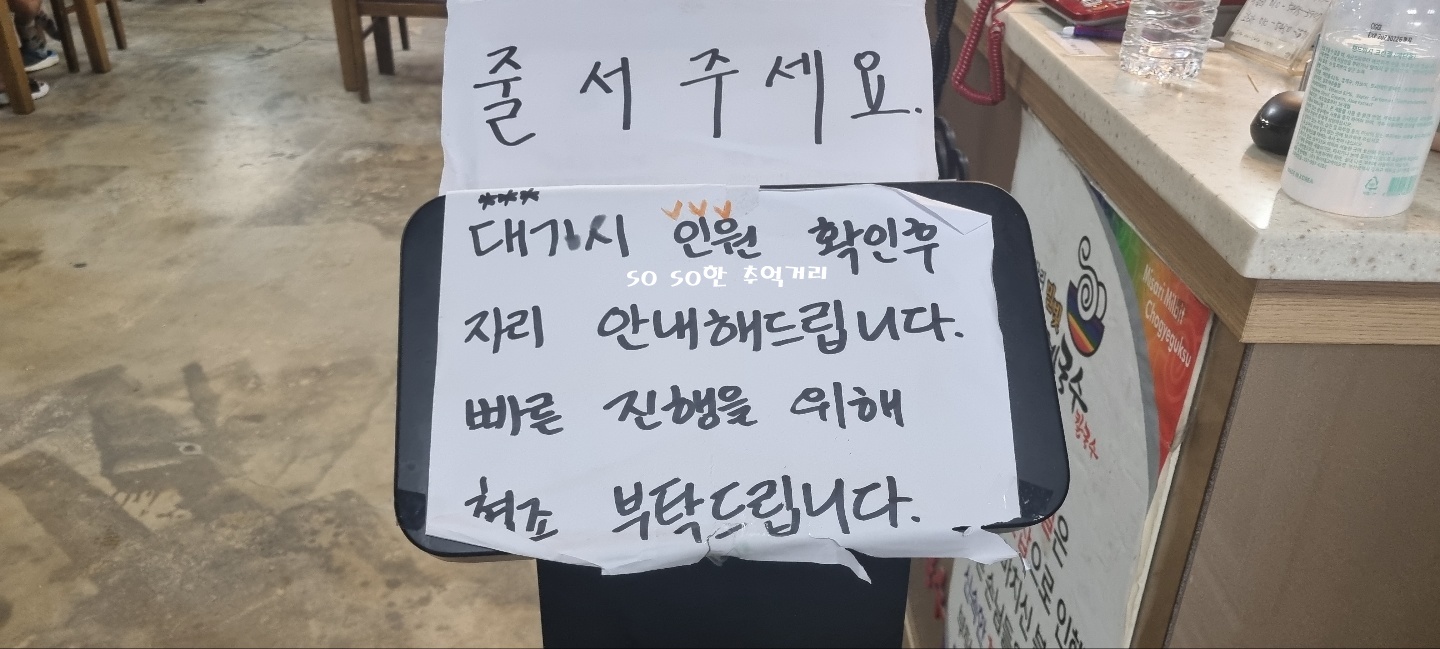 줄 서 주 세 요.
***
대기시 인원 확인후
so so한 추억거리
자리 안내해드립니다.
빠른 진행을 위해
협조 부탁드립니다.
Misari Milbit
Chogyeguksu
국수
칼국수